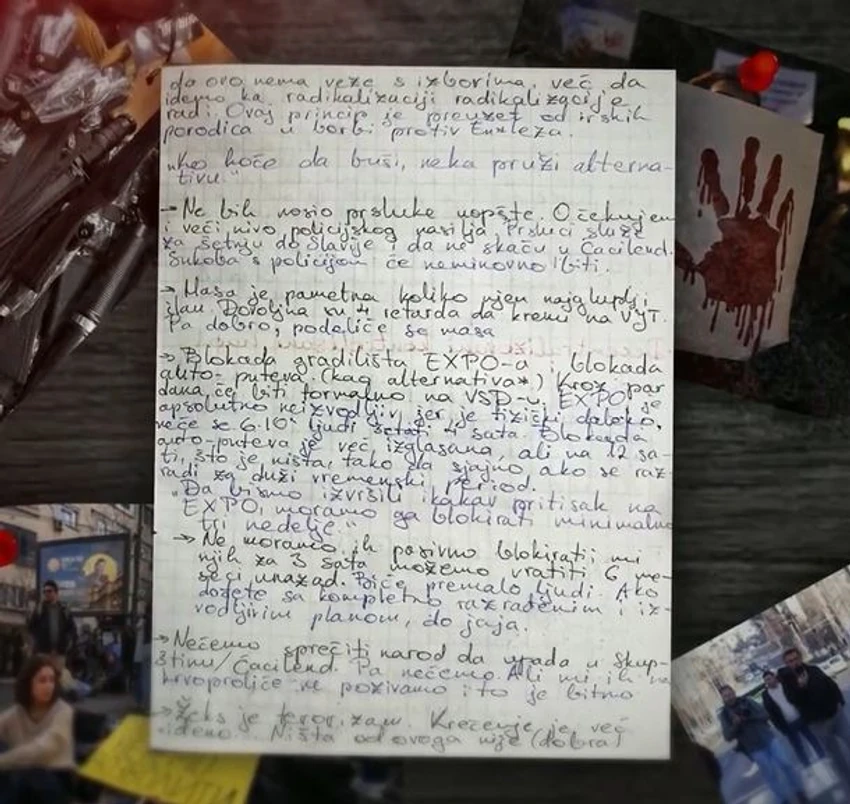 da ovo nema veze s izborima, već da
idemo ka radikalizaciji radikalizacije
radi. Ovaj princip je preuzet od irskih
porodica u borbi protiv Engleza.
„Ko hoće da buši, neka pruži alterna-
tivu."
→ Ne bih nosio prsluke uopšte. Očekujem
i veći nivo policijskog nasilja. Prsluci služe
za šetnju do Slavije i da ne skaču u Ćacilend.
Sukoba s policijom će neminovno biti.
→ Masa je pametna koliko njen najgluplji
član. Dovoljna su 4 retarda da krenu na VJT.
Pa dobro, podeliće se masa
→ Blokada gradilišta EXPO-a i blokada
auto-puteva (kao alternativa*) Kroz par
dana će biti formalno na VSD-u. EXPO je
apsolutno neizvodljiv jer je fizički daleko,
neće se 6.10⁴ ljudi šetati 4 sata. Blokada
auto-puteva je već izglasana, ali na 12 sa-
ti, što je ništa, tako da sjajno ako se raz-
radi za duži vremenski period.
„Da bismo izvršili ikakav pritisak na
EXPO, moramo ga blokirati minimalno
tri nedelje."
→ Ne moramo ih pasivno blokirati; mi
njih za 3 sata možemo vratiti 6 me-
seci unazad. Biće premalo ljudi. Ako
dođete sa kompletno razrađenim i iz-
vodljivim planom, do jaja.
→ Nećemo sprečiti narod da upada u Skup-
štinu/Ćacilend. Pa nećemo. Ali mi ih na
krvoproliće ne pozivamo i to je bitno
→ Žeks je terorizam. Krečenje je već
viđeno. Ništa od ovoga nije (dobra)